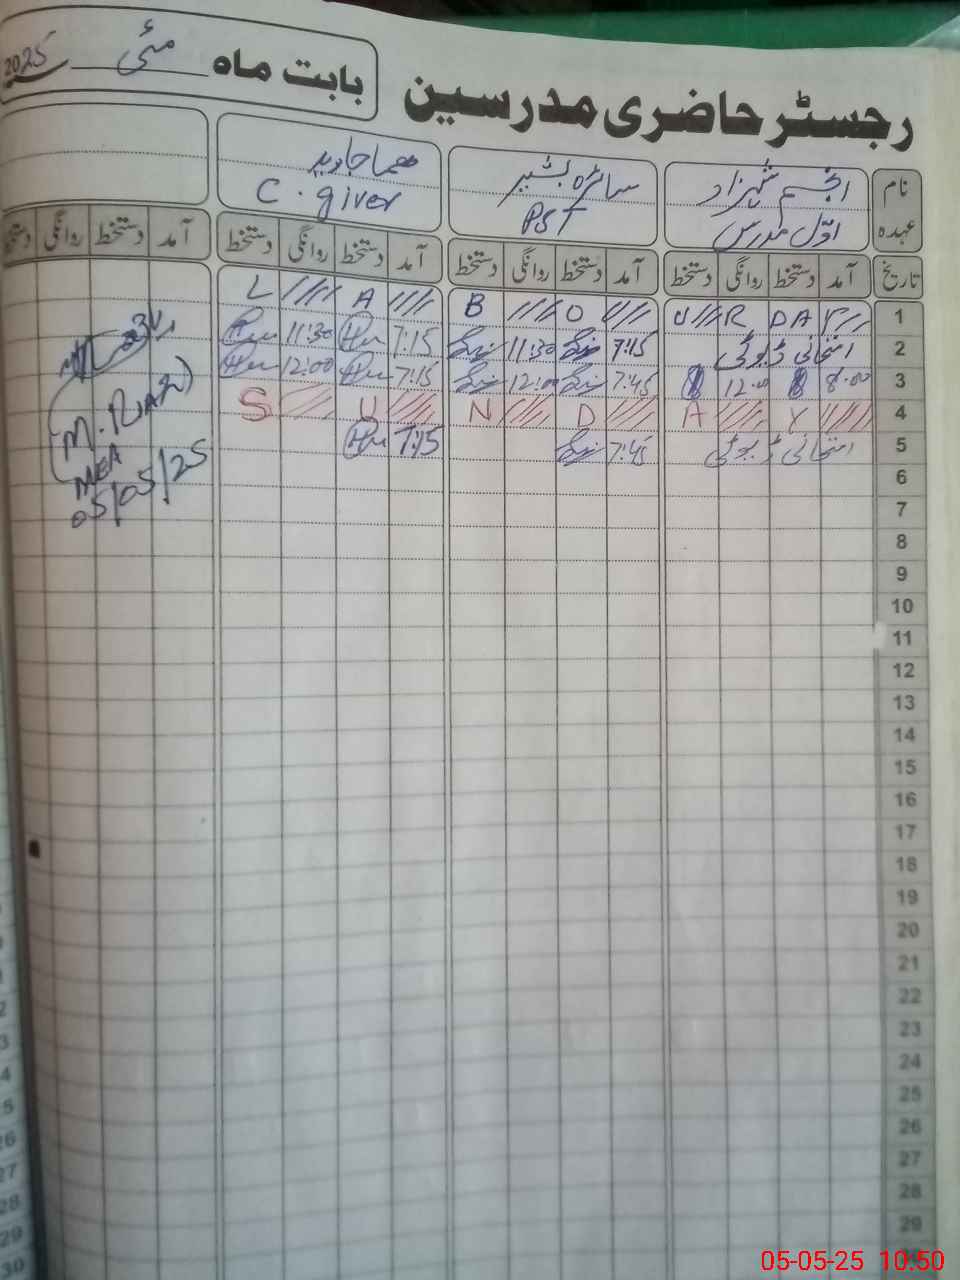 رجسٹر حاضری مدرسین
بابت ماہ مئی 2025
نام انجم شہزاد سائرہ بشیر ہما جاوید
عہدہ اوّل مدرس PST C. giver
تاریخ آمد دستخط روانگی دستخط آمد دستخط روانگی دستخط آمد دستخط روانگی دستخط آمد دستخط روانگی دستخط
1 L A B O U R D A Y
2 امتحانی ڈیوٹی 7:15 11:30 7:15 11:30
3 8:00 12:00 7:45 12:00 7:15 12:00
4 S U N D A Y
5 امتحانی ڈیوٹی 7:45 7:15
6
7
8
9
10
11
12
13
14
15
16
17
18
19
20
21
22
23
24
25
26
27
28
29
M. RIAZ
MEA
05/05/25
05-05-25 10:50